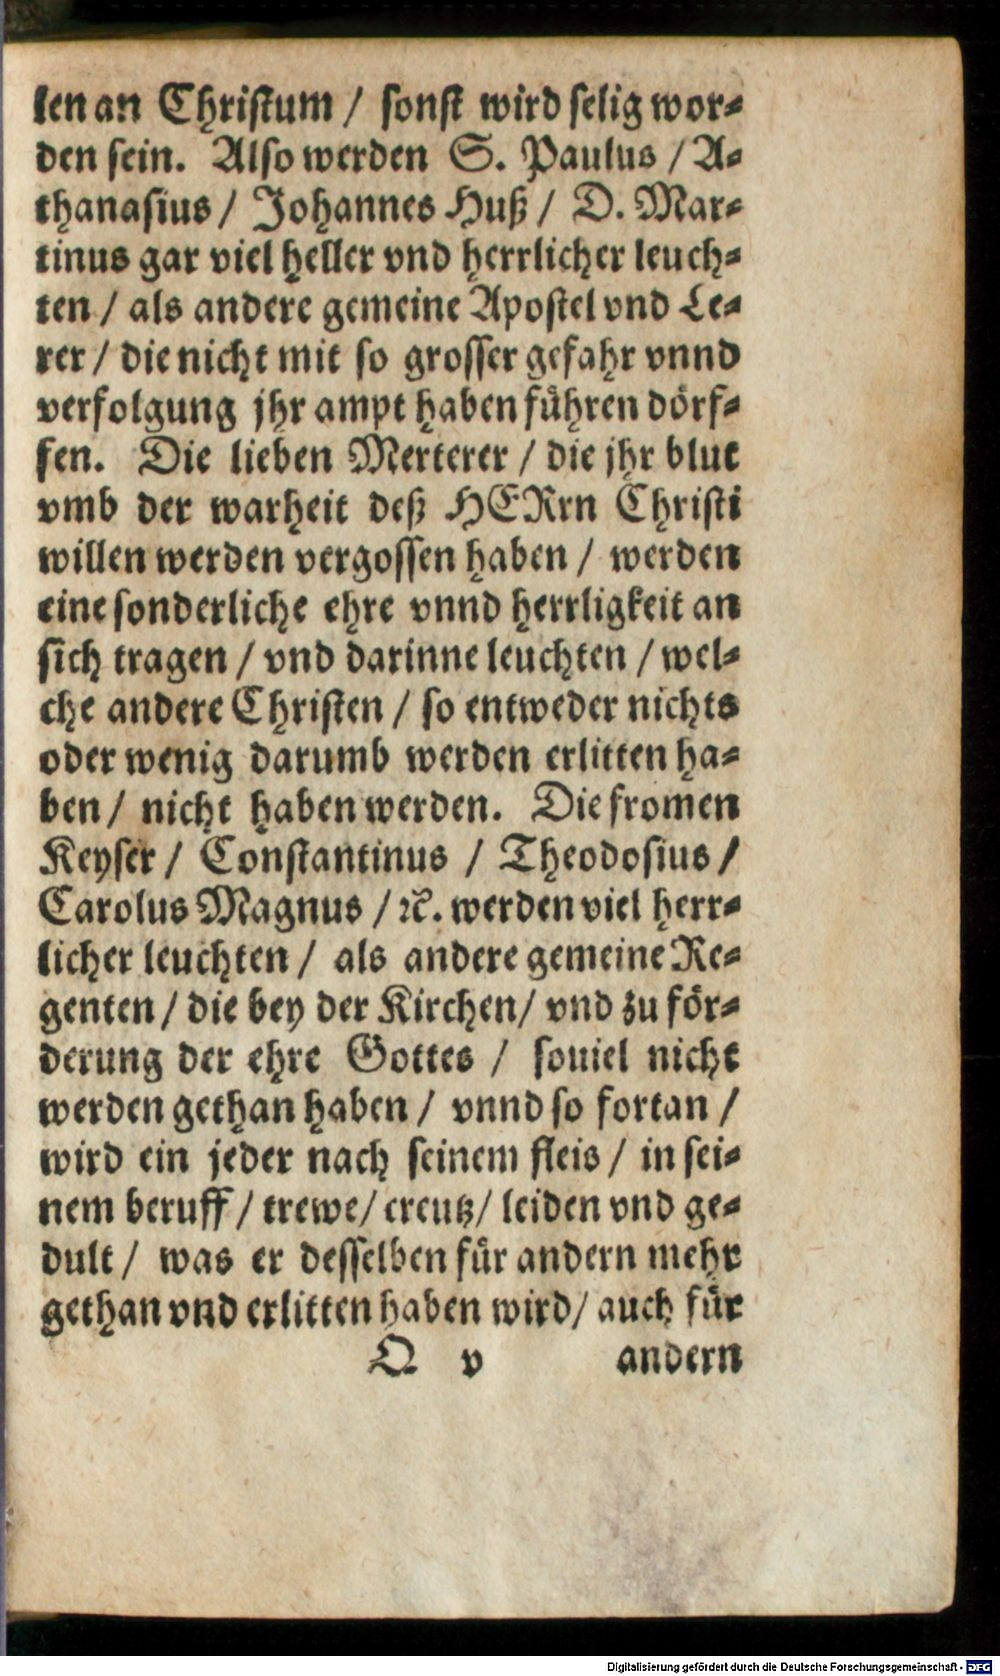 len an Christum / sonst wird selig wor-
den sein. Also werden S. Paulus / A-
thanasius / Johannes Huß / D. Mar-
tinus gar viel heller vnd herrlicher leuch-
ten / als andere gemeine Apostel vnd Le-
rer / die nicht mit so grosser gefahr vnnd
verfolgung jhr ampt haben führen dörf-
fen. Die lieben Merterer / die jhr blut
vmb der warheit deß HERrn Christi
willen werden vergossen haben / werden
eine sonderliche ehre vnnd herrligkeit an
sich tragen / vnd darinne leuchten / wel-
che andere Christen / so entweder nichts
oder wenig darumb werden erlitten ha-
ben / nicht haben werden. Die fromen
Keyser / Constantinus / Theodosius /
Carolus Magnus / ꝛc. werden viel herr-
licher leuchten / als andere gemeine Re-
genten / die bey der Kirchen / vnd zu för-
derung der ehre Gottes / souiel nicht
werden gethan haben / vnnd so fortan /
wird ein jeder nach seinem fleis / in sei-
nem beruff / trewe / creutz / leiden vnd ge-
dult / was er desselben für andern mehr
gethan vnd erlitten haben wird / auch für
Q v andern
Digitalisierung gefördert durch die Deutsche Forschungsgemeinschaft - DFG